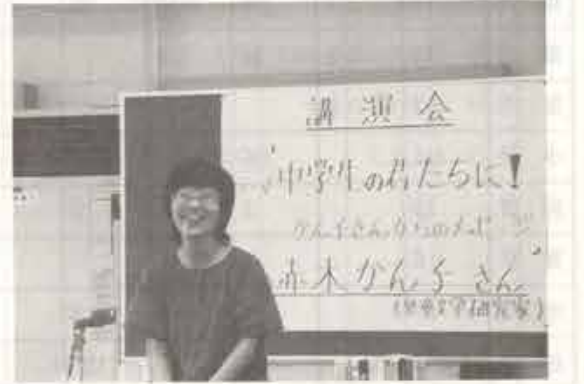 講演会
中学生の君たちに!
かん子さんからのメッセージ
赤木かん子さん
(児童文学研究家)